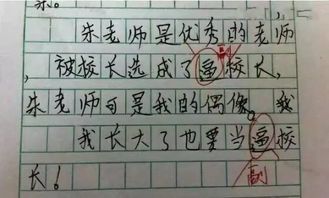 亲。
朱老师是优秀的老师
，被校长选成了逼校长，
朱老师可是我的偶像。我
我长大了也要当逼校
长！
副